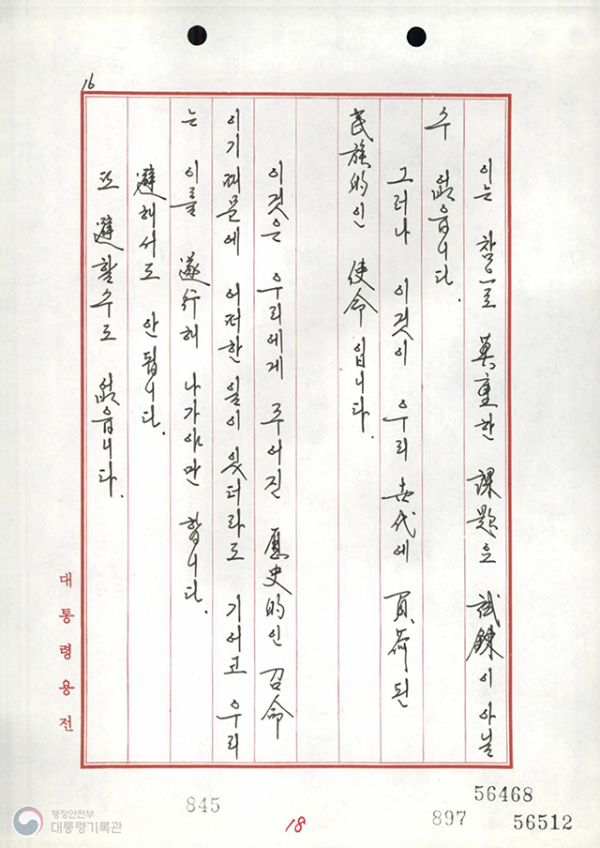 16
이는 참으로 莫重한 課題요 試鍊이 아닐
수 없읍니다.
그러나 이것이 우리 世代에 負荷된
民族的인 使命입니다.
이것은 우리에게 주어진 歷史的인 召命
이기 때문에 어떠한 일이 있더라도 기어코 우리
는 이를 遂行해 나가야만 합니다.
避해서도 안 됩니다.
또 避할수도 없읍니다.
대통령용전
845
18
897
56468
56512
행정안전부
대통령기록관